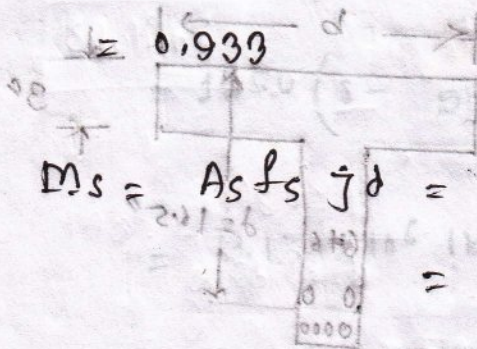 = 0.933
Ms = As fs jd =
=